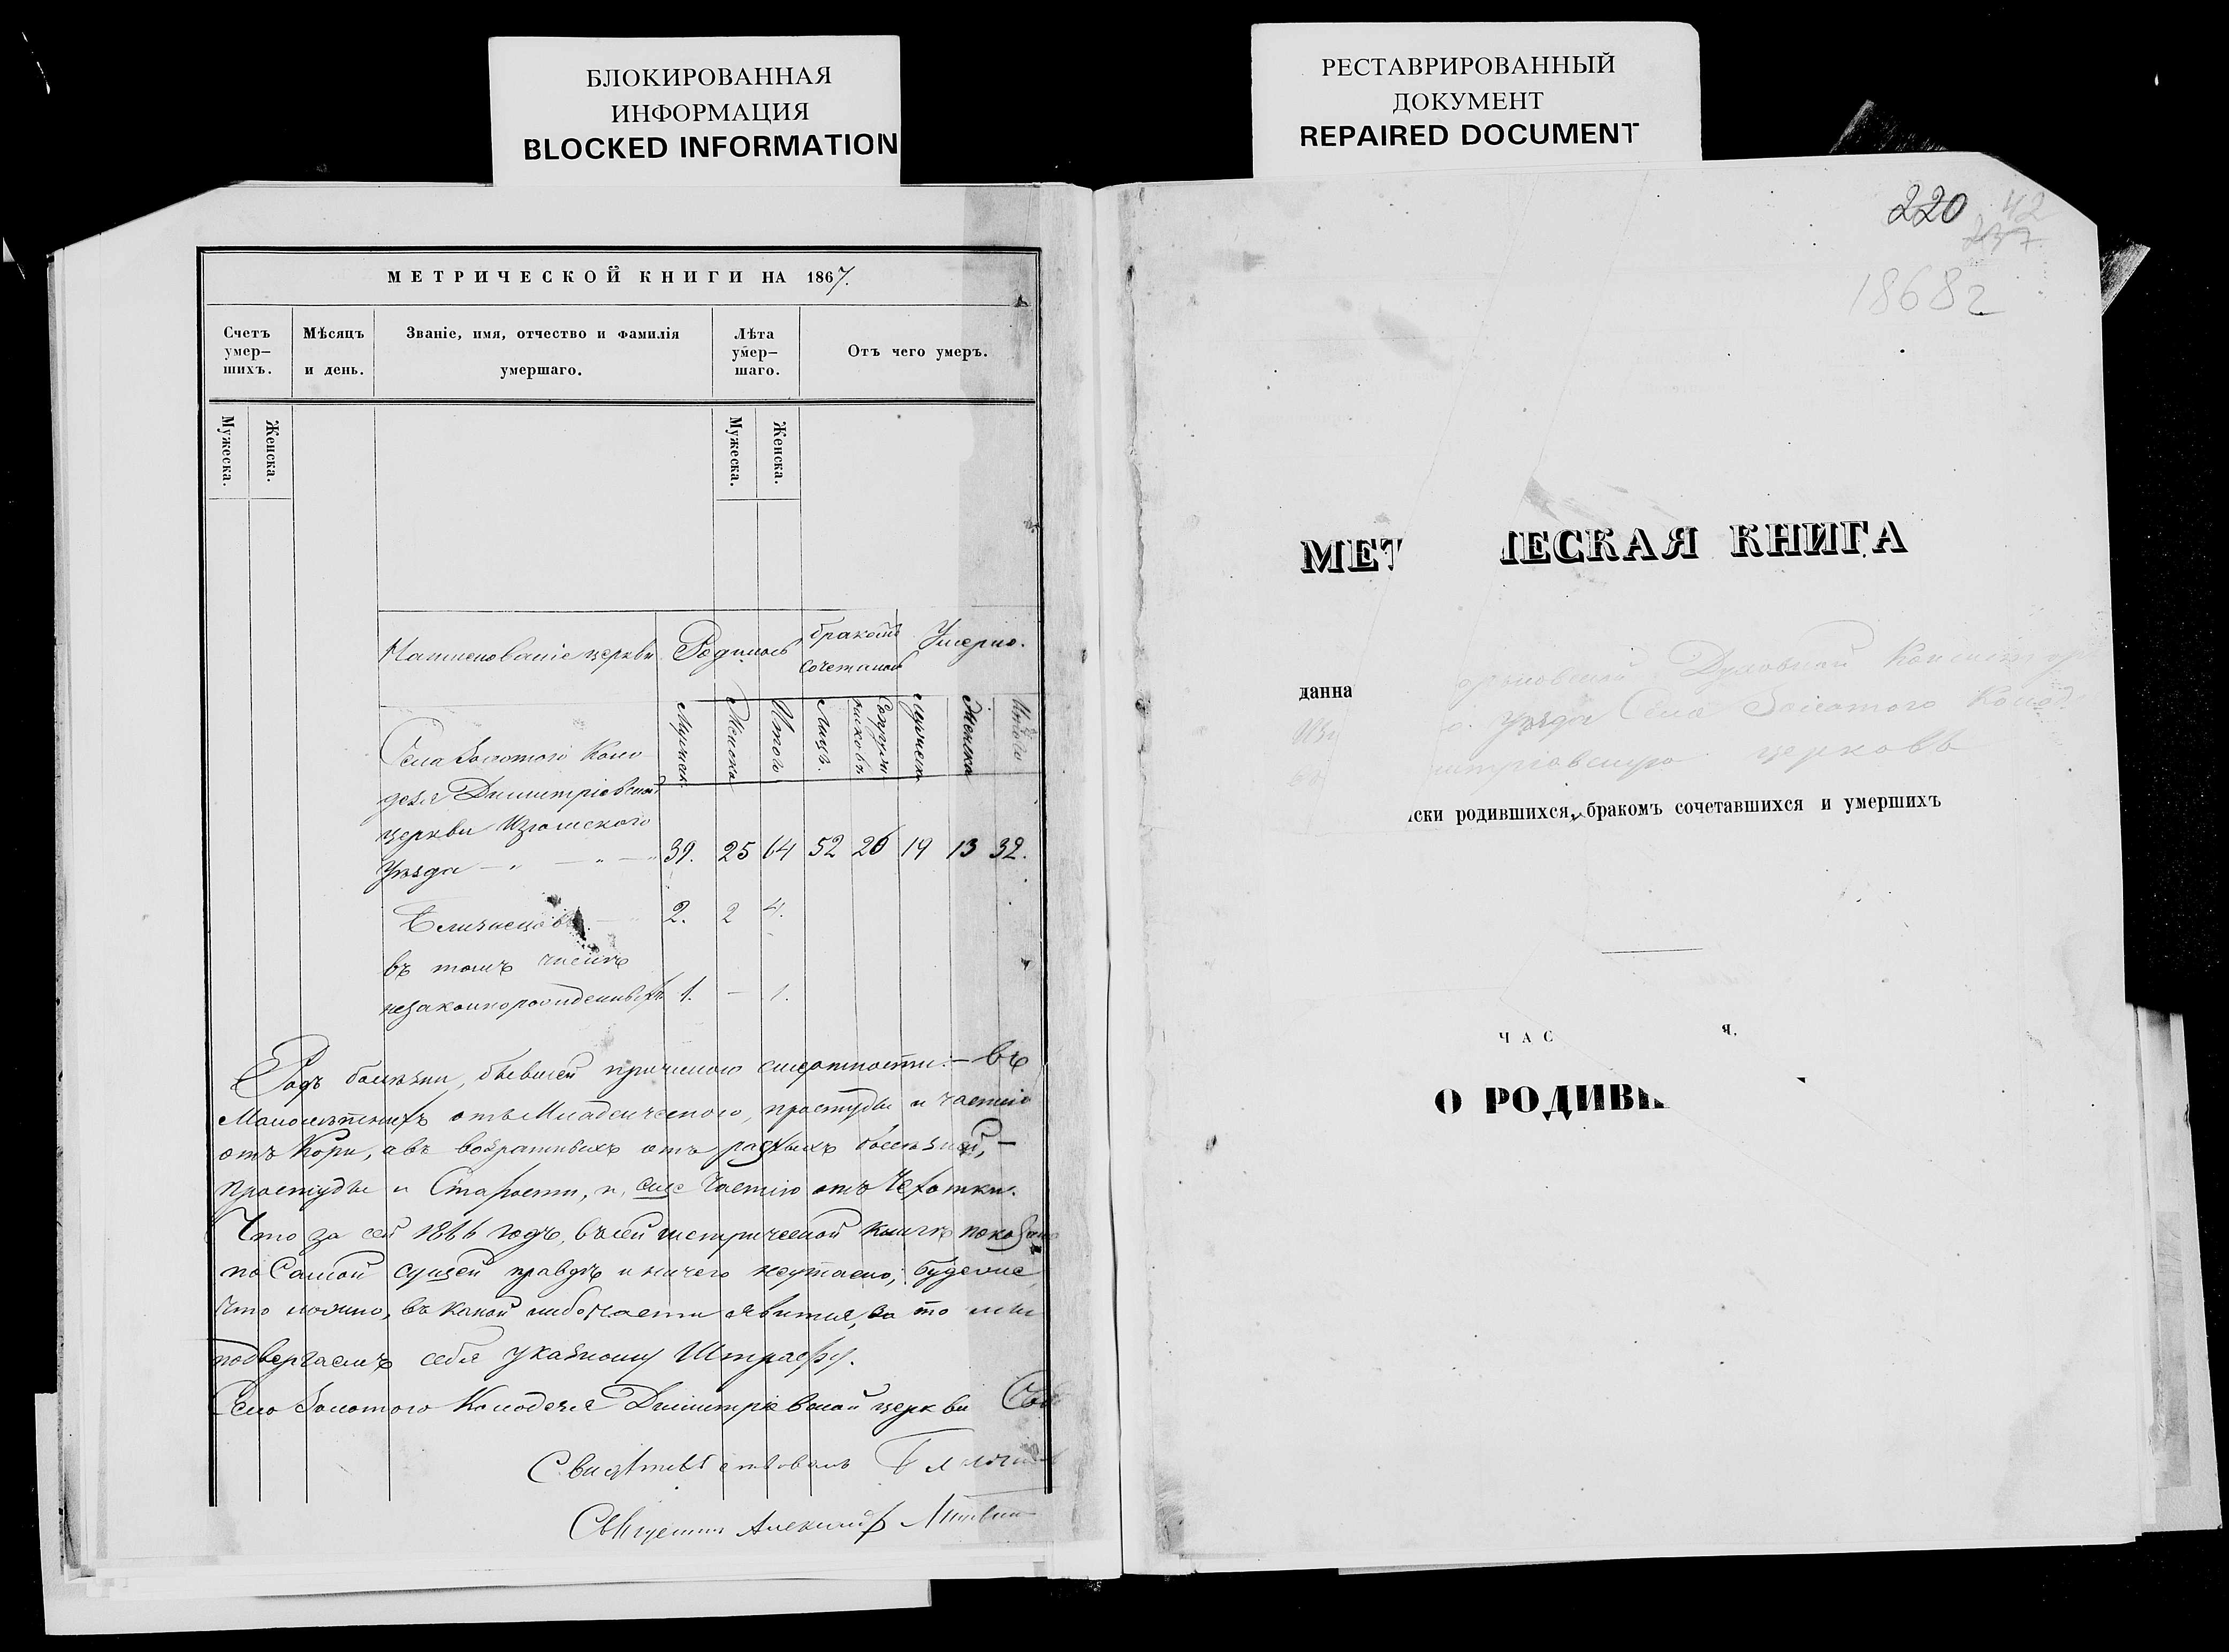 БЛОКИРОВАННАЯ
ИНФОРМАЦИЯ
BLOCKED INFORMATION
МЕТРИЧЕСКОЙ КНИГИ НА 1867.
Счетъ умер–шихъ.
Мѣсяцъ и день.
Званіе, имя, отчество и фамилія умершаго.
Лѣта умер–шаго.
Отъ чего умеръ.
Мужеска.
Женска.
Мужеска.
Женска.
Наименованіе церкви
Родилось
бракомъ
сочеталось
Умерло.
Мужеск.
Женска
Итого
Лицъ.
Мужеск
Женска
Итого
Села Золотого Коло
дезя Димитріевской
церкви Изюмского
Уѣзда — " — " — 39. 25 64 52 26 19 13 32.
Близнецовъ 2. 2 4.
въ томъ числѣ
незаконнорожденныхъ 1. — 1.
Родъ болѣзни, бывшей причиною смертности: – въ
Малолѣтнихъ отъ Младенческого, простуды и частію
отъ Кори, а въ возрастныхъ отъ разныхъ болѣзней, –
простуды и Старости, и еще Частію отъ Чехотки.
Что за сей 1866 годъ, въ сей метрической книгѣ показано
по Самой сущей правдѣ и ничего неутаено; буде же
что ложно, въ какой либо части явится, за то мы
подвергаемъ себя указному Штрафу.
Села Золотого Колодезя Димитріевской церкви
Свидѣтельствовалъ
Священникъ Александръ
РЕСТАВРИРОВАННЫЙ
ДОКУМЕНТ
REPAIRED DOCUMENT
220 42
237
1868 г
МЕТ ЧЕСКАЯ КНИГА
данна Духовной Консистор
уѣзда Села Золотого Колод
митріевскую церковь
ски родившихся, бракомъ сочетавшихся и умершихъ
ЧАС я.
О РОДИВШ